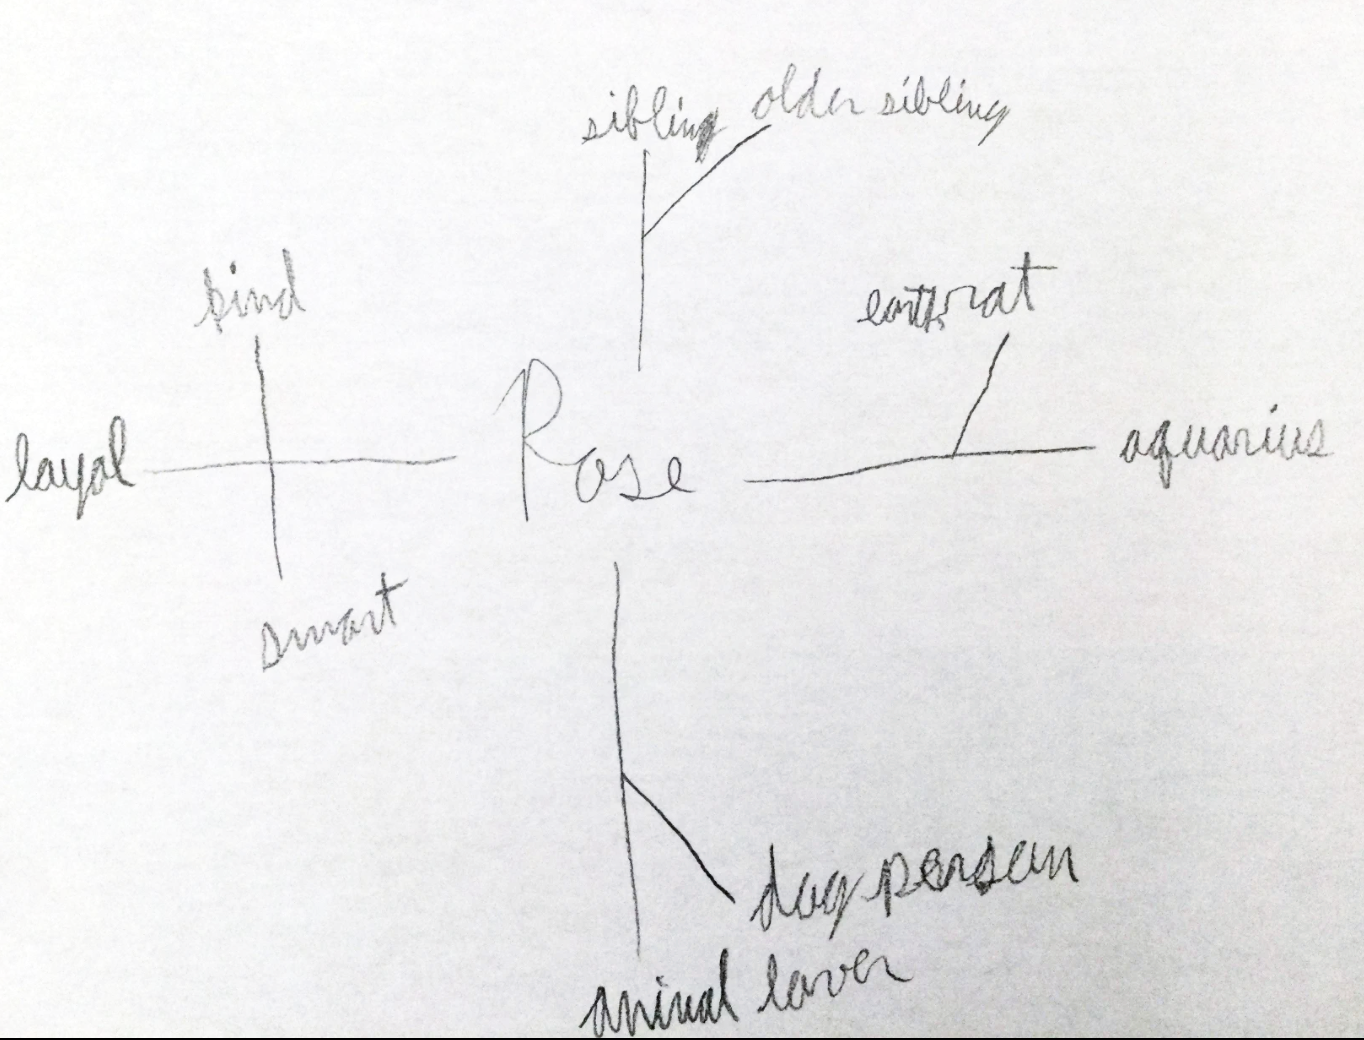 sibling older sibling
kind
earth rat
loyal
Rose
aquarius
smart
dog person
animal lover